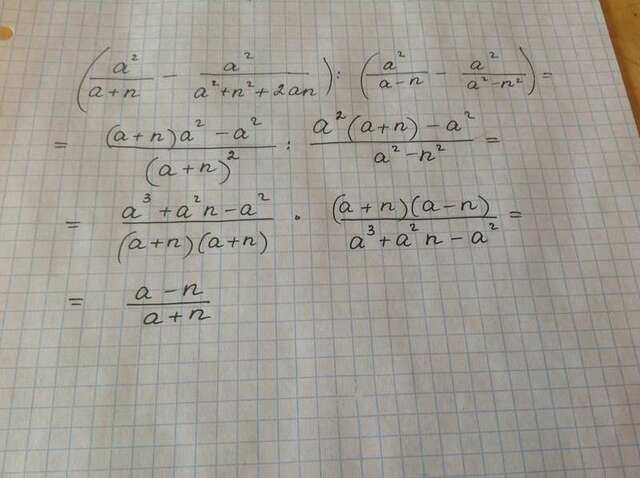 (a²/(a+n) − a²/(a²+n²+2an)) : (a²/(a−n) − a²/(a²−n²)) =
= ((a+n)a² − a²)/(a+n)² : (a²(a+n) − a²)/(a²−n²) =
= (a³+a²n−a²)/((a+n)(a+n)) · ((a+n)(a−n))/(a³+a²n−a²) =
= (a−n)/(a+n)